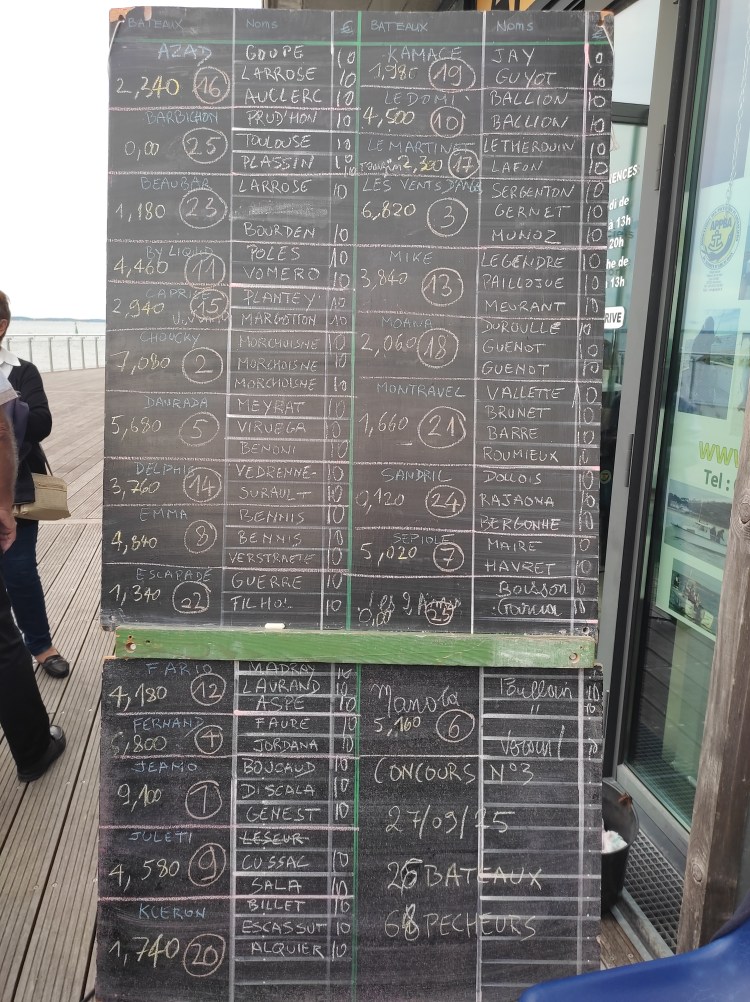 BATEAUX NOMS €
AZAD GOUPE 10
2,340 16 LARROSE 10
AUCLERC 10
BARBICHON PRUD'HON 10
0,00 25 TOULOUSE 10
PLASSIN 10
BEAUBAR LARROSE 10
1,180 23
BOURDEN 10
BY LIQUID POLES 10
4,460 11 VOMERO 10
CAPRICE PLANTEY 10
2,940 15 MARGOTTON 10
CHOUCKY MORCHOISNE 10
7,080 2 MORCHOISNE 10
MORCHOISNE 10
DAURADA MEYRAT 10
5,680 5 VIRUEGA 10
BENONI 10
DELPHIS VEDRENNE 10
3,760 14 SURAULT 10
EMMA BENNIS 10
4,840 8 BENNIS 10
VERSTRAETE 10
ESCAPADE GUERRE 10
1,340 22 FILHOL 10
FARIO MADRAY 10
4,180 12 LAVRAND 10
ASPE 10
FERNAND FAURE 10
,800 4 JORDANA 10
JEAMO BOUCAUD 10
9,100 1 DISCALA 10
GENEST 10
JULETI LESEUR
4,580 9 CUSSAC 10
SALA 10
KLERON BILLET 10
1,740 20 ESCASSUT 10
ALQUIER 10
BATEAUX NOMS €
KAMACE JAY 10
1,980 19 GUYOT 10
LEDOMI BALLION 10
4,500 10 BALLION 10
LE MARTINET LETHEROUIN 10
2,300 17 LAFON 10
LES VENTS D'ANGE SERGENTON 10
6,820 3 GERNET 10
MUNOZ 10
MIKE LEGENDRE 10
3,840 13 PAILLOJUE 10
MEURANT 10
MOANA DUROULLE 10
2,060 18 GUENOT 10
GUENOT 10
MONTRAVEL VALLETTE 10
1,660 21 BRUNET 10
BARRE 10
ROUMIEUX 10
SANDRIL DOLLOIS 10
0,120 24 RAJAONA 10
BERGONHE 10
SEPIOLE MAIRE 10
5,020 7 HAVRET 10
Les 2 Boisson 10
0,00 25 10
Manola 10
5,160 6 "
10
CONCOURS N°3
27/09/25
26 BATEAUX
68 PECHEURS
ENCES
di de
à 13h
20h
he de
13h
RIVE
www
Tel :